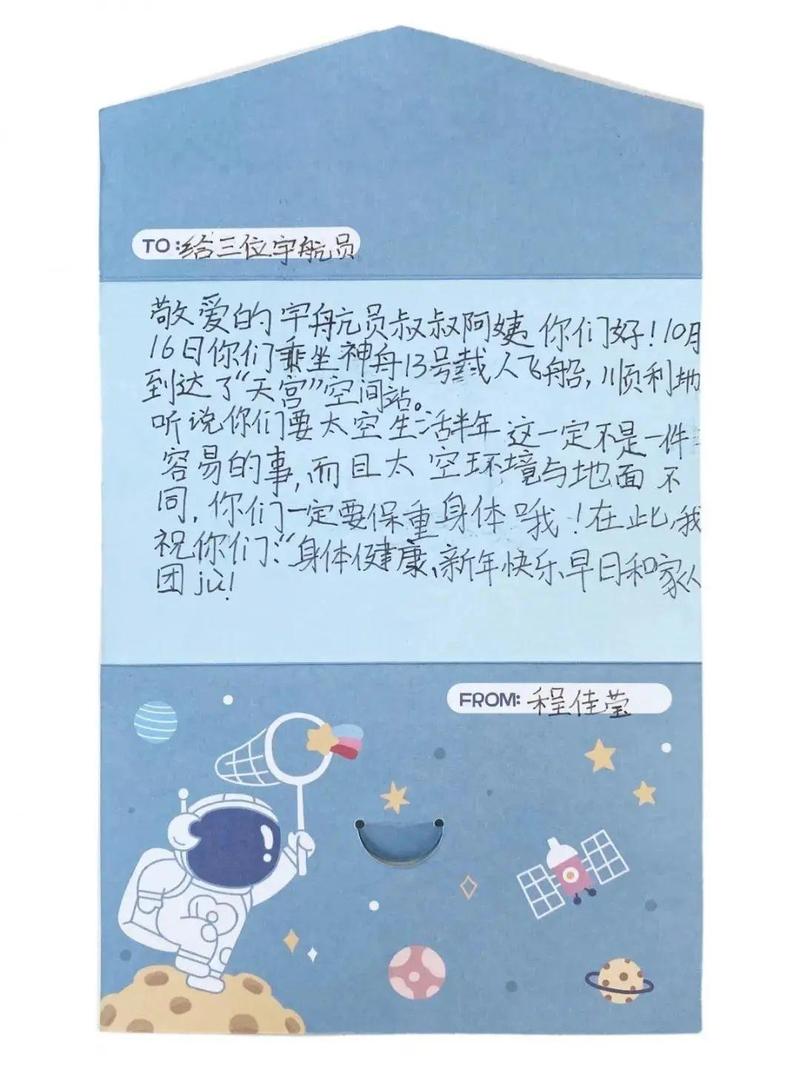 TO:给三位宇航员
敬爱的宇航员叔叔阿姨你们好!10月
16日你们乘坐神舟13号载人飞船,顺利地
到达了“天宫”空间站。
听说你们要太空生活半年这一定不是一件
容易的事,而且太空环境与地面不
同,你们一定要保重身体哦!在此,我
祝你们:“身体健康、新年快乐早日和家人
团jù!
FROM:程佳莹